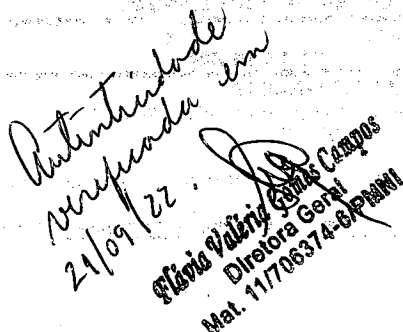 Autenticidade
verificada em
21/09/22.
Flávia Valéria Gomes Campos
Diretora Geral
Mat. 11/706374-6/PMNI